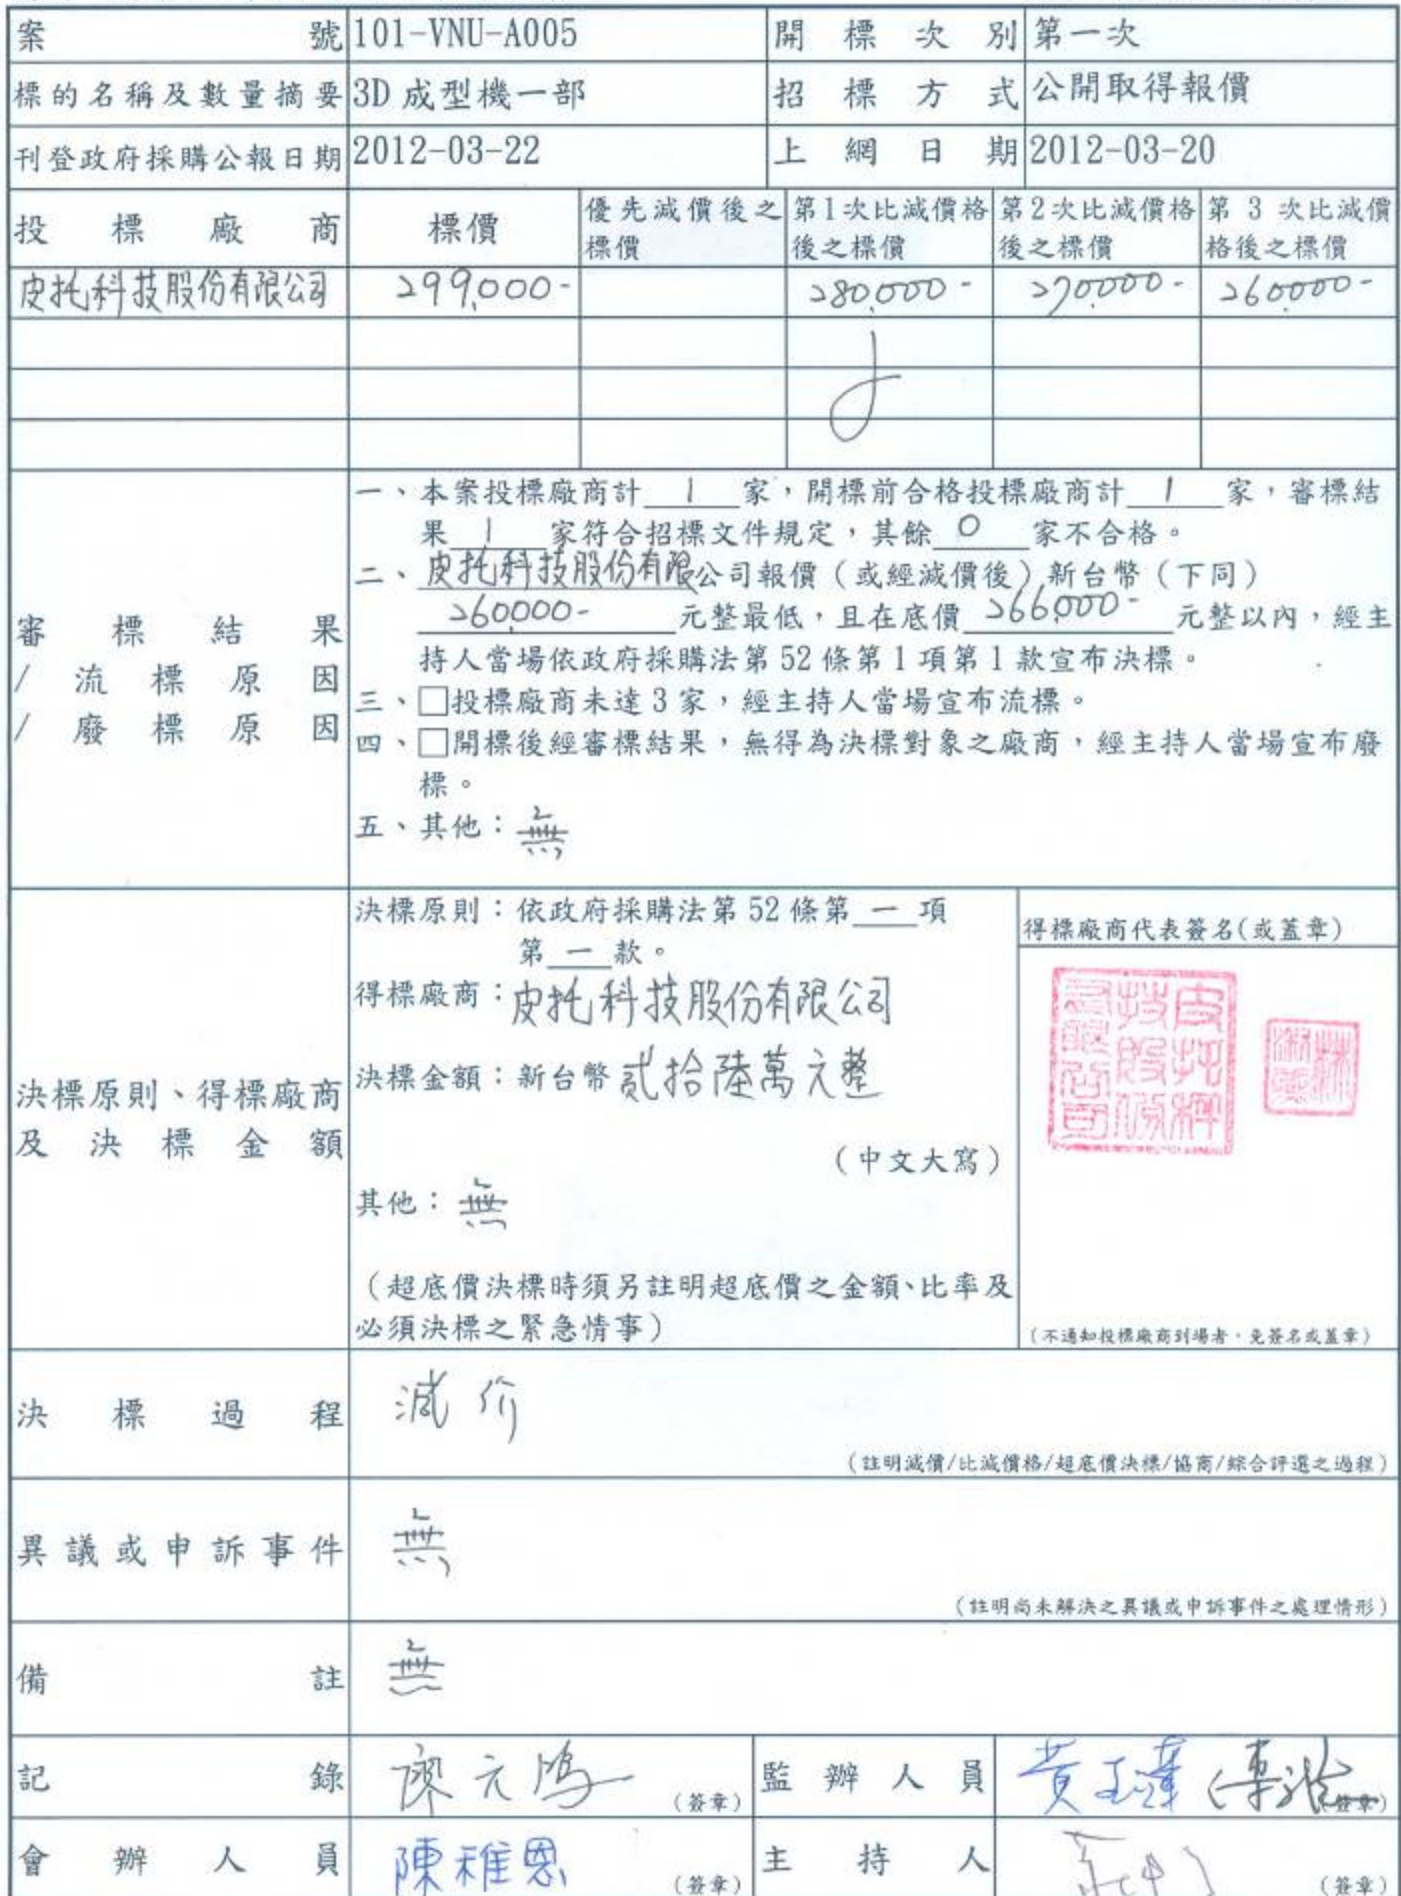 案號 101-VNU-A005 開標次別 第一次
標的名稱及數量摘要 3D 成型機一部 招標方式 公開取得報價
刊登政府採購公報日期 2012-03-22 上網日期 2012-03-20
投標廠商 標價 優先減價後之標價 第1次比減價格後之標價 第2次比減價格後之標價 第 3 次比減價格後之標價
皮托科技股份有限公司 299,000- 280,000- 270,000- 260,000-
審標結果
/流標原因
/廢標原因
一、本案投標廠商計 1 家，開標前合格投標廠商計 1 家，審標結
果 1 家符合招標文件規定，其餘 0 家不合格。
二、皮托科技股份有限公司報價（或經減價後）新台幣（下同）
260,000- 元整最低，且在底價 266,000- 元整以內，經主
持人當場依政府採購法第 52 條第 1 項第 1 款宣布決標。
三、□投標廠商未達 3 家，經主持人當場宣布流標。
四、□開標後經審標結果，無得為決標對象之廠商，經主持人當場宣布廢
標。
五、其他：無
決標原則、得標廠商
及決標金額
決標原則：依政府採購法第 52 條第 一 項
第 一 款。
得標廠商：皮托科技股份有限公司
決標金額：新台幣 貳拾陸萬元整
（中文大寫）
其他：無
（超底價決標時須另註明超底價之金額、比率及
必須決標之緊急情事）
得標廠商代表簽名(或蓋章)
皮托科技股份有限公司
（不通知投標廠商到場者，免簽名或蓋章）
決標過程 減價
（註明減價/比減價格/超底價決標/協商/綜合評選之過程）
異議或申訴事件 無
（註明尚未解決之異議或申訴事件之處理情形）
備註 無
記錄 廖元鴻 （簽章） 監辦人員 （簽章）
會辦人員 陳稚恩 （簽章） 主持人 （簽章）